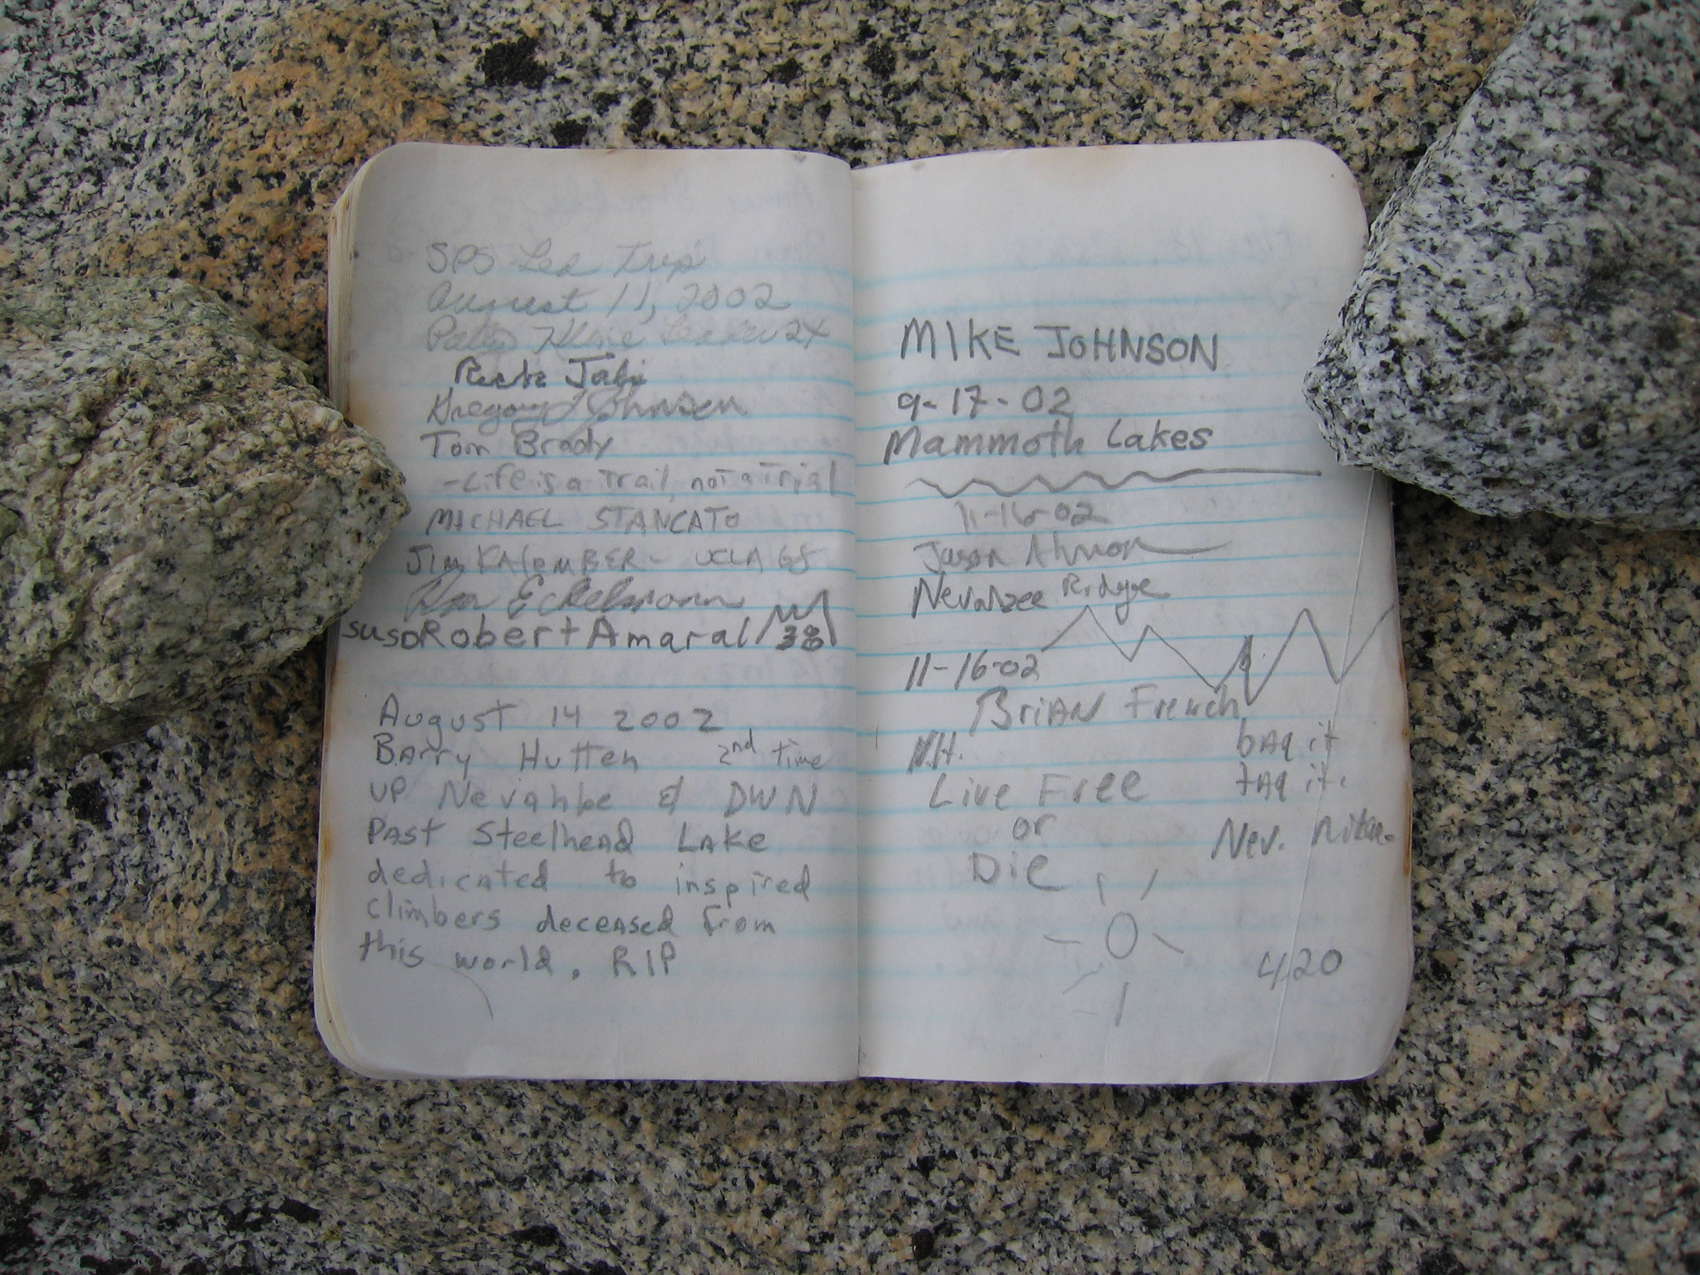 SPS Led Trip
August 11, 2002
Patty Kline Leader 2x
Gregory Johnson
Tom Brody
-Life is a Trail, not a Trial
MICHAEL STANCATO
JIM KALEMBER - UCLA 68
Eckelmann
Robert Amaral
August 14 2002
Barry Hutten 2nd time
up Nevahbe & DWN
Past Steelhead Lake
dedicated to inspired
climbers deceased from
this world. RIP
MIKE JOHNSON
9-17-02
Mammoth Lakes
11-16-02
Jason
Nevahbee Ridge
11-16-02
BriAN French
N.H. bAg it
Live Free tAg it.
or Nev.
Die
420